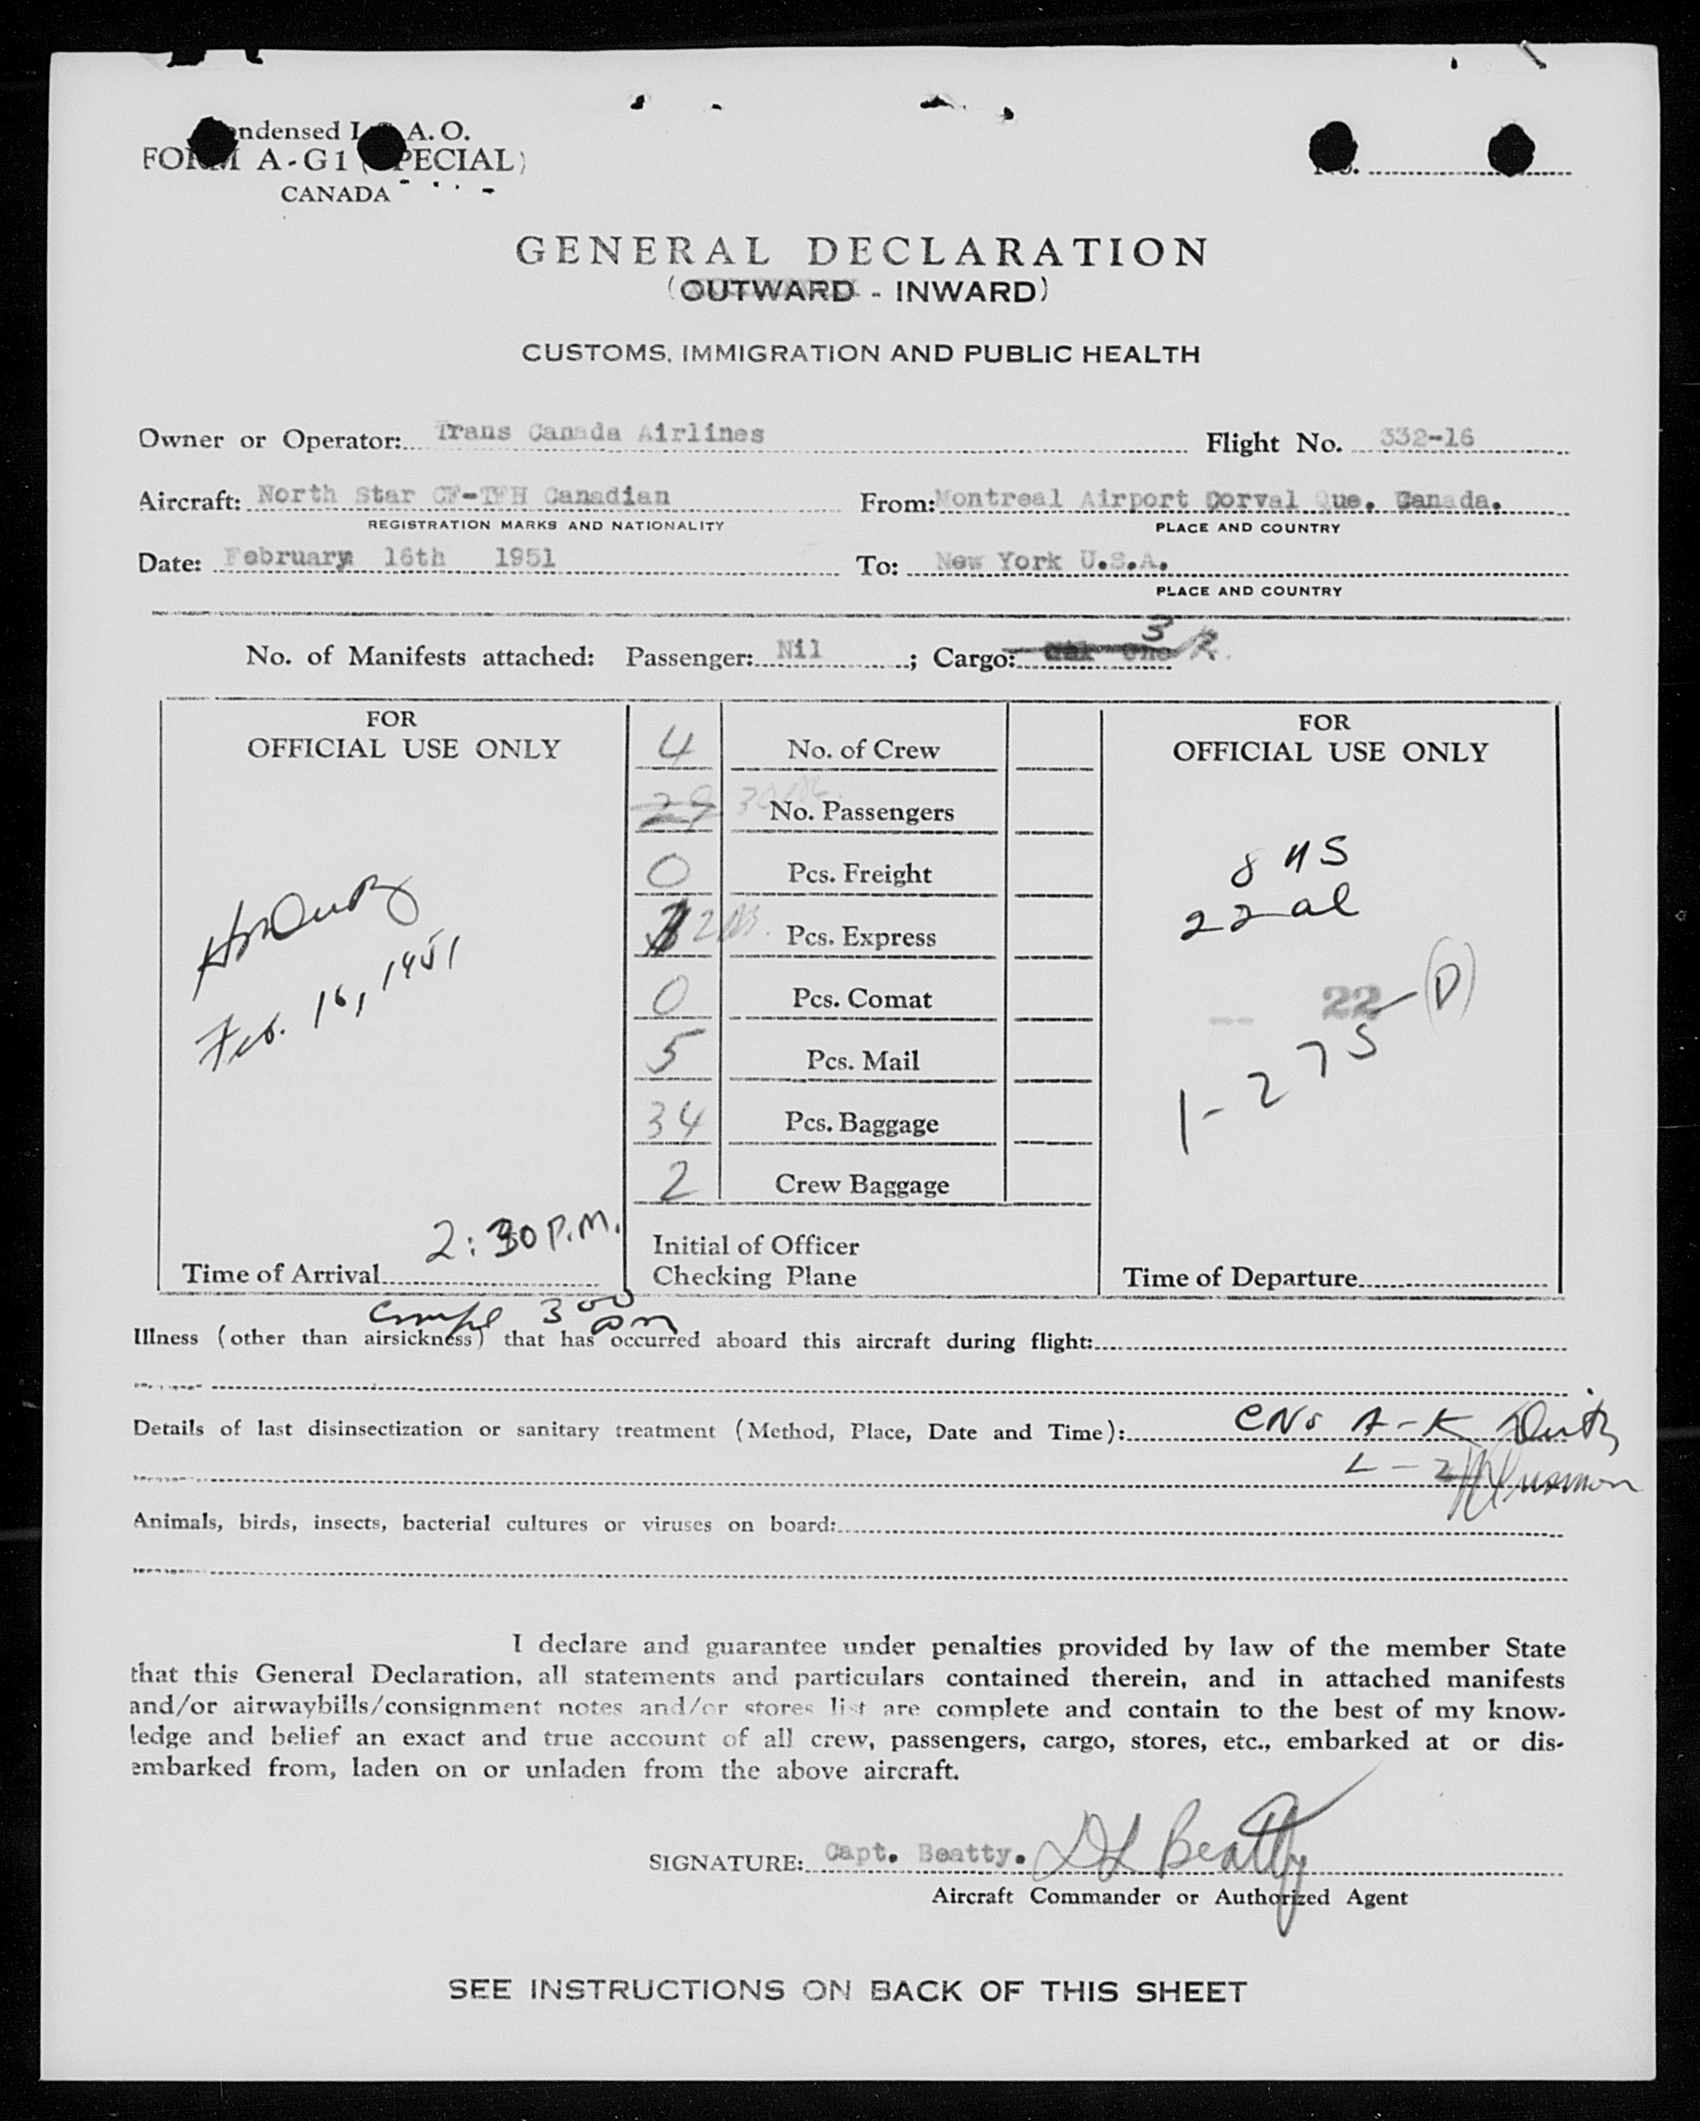 Condensed I. C. A. O.
FORM A-G1 (SPECIAL)
CANADA
No.
GENERAL DECLARATION
(OUTWARD - INWARD)
CUSTOMS, IMMIGRATION AND PUBLIC HEALTH
Owner or Operator: Trans Canada Airlines Flight No. 332-16
Aircraft: North Star CF-TFH Canadian From: Montreal Airport Dorval Que. Canada.
REGISTRATION MARKS AND NATIONALITY PLACE AND COUNTRY
Date: February 16th 1951 To: New York U.S.A.
PLACE AND COUNTRY
No. of Manifests attached: Passenger: Nil ; Cargo: 3
FOR
OFFICIAL USE ONLY
Feb. 16, 1951
2:30 P.M.
Time of Arrival
4 No. of Crew
29 30 No. Passengers
0 Pcs. Freight
2 Pcs. Express
0 Pcs. Comat
5 Pcs. Mail
34 Pcs. Baggage
2 Crew Baggage
Initial of Officer
Checking Plane
FOR
OFFICIAL USE ONLY
8 US
22 al
22 - (D)
1-275
Time of Departure
Compl 3 00 pm
Illness (other than airsickness) that has occurred aboard this aircraft during flight:
Details of last disinsectization or sanitary treatment (Method, Place, Date and Time): A-K
L-Z
Animals, birds, insects, bacterial cultures or viruses on board:
I declare and guarantee under penalties provided by law of the member State
that this General Declaration, all statements and particulars contained therein, and in attached manifests
and/or airwaybills/consignment notes and/or stores list are complete and contain to the best of my know-
ledge and belief an exact and true account of all crew, passengers, cargo, stores, etc., embarked at or dis-
embarked from, laden on or unladen from the above aircraft.
SIGNATURE: Capt. Beatty. DL Beatty
Aircraft Commander or Authorized Agent
SEE INSTRUCTIONS ON BACK OF THIS SHEET